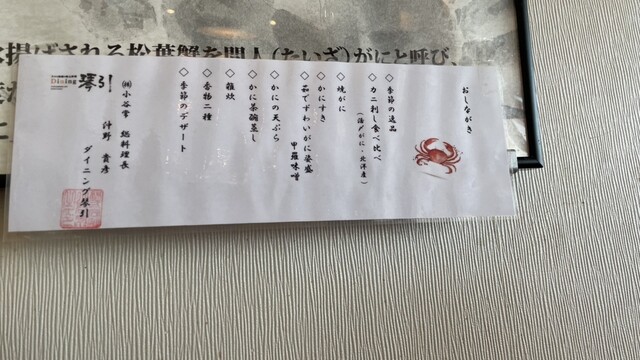 揚げされる松葉蟹を間人(たいざ)がにと呼び、
おしながき
◇季節の逸品
◇カニ刺し食べ比べ
◇焼がに
◇かにすき
◇茹でずわいがに姿盛
甲羅味噌
◇かにの天ぷら
◇かに茶碗蒸し
◇雑炊
◇香物二種
◇季節のデザート
Dining
琴引
㈱小谷常 総料理長
仲野 貴彦
ダイニング琴引